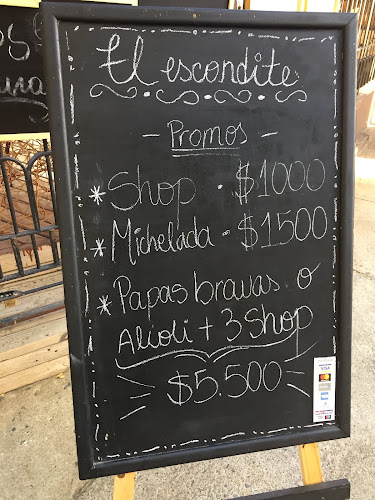 El escondite
- Promos -
* Shop • $1000
* Michelada • $1500
* Papas bravas o
Alioli + 3 Shop
$5.500
VISA